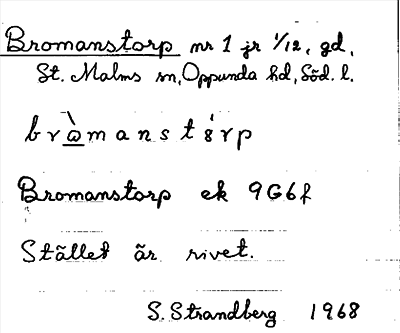 Bromanstorp nr 1 jr 1/12, gd,
St. Malms sn, Oppunda hd, Söd. l.
bròmanstórp
Bromanstorp ek 9G6f
Stället är rivet.
S. Strandberg 1968